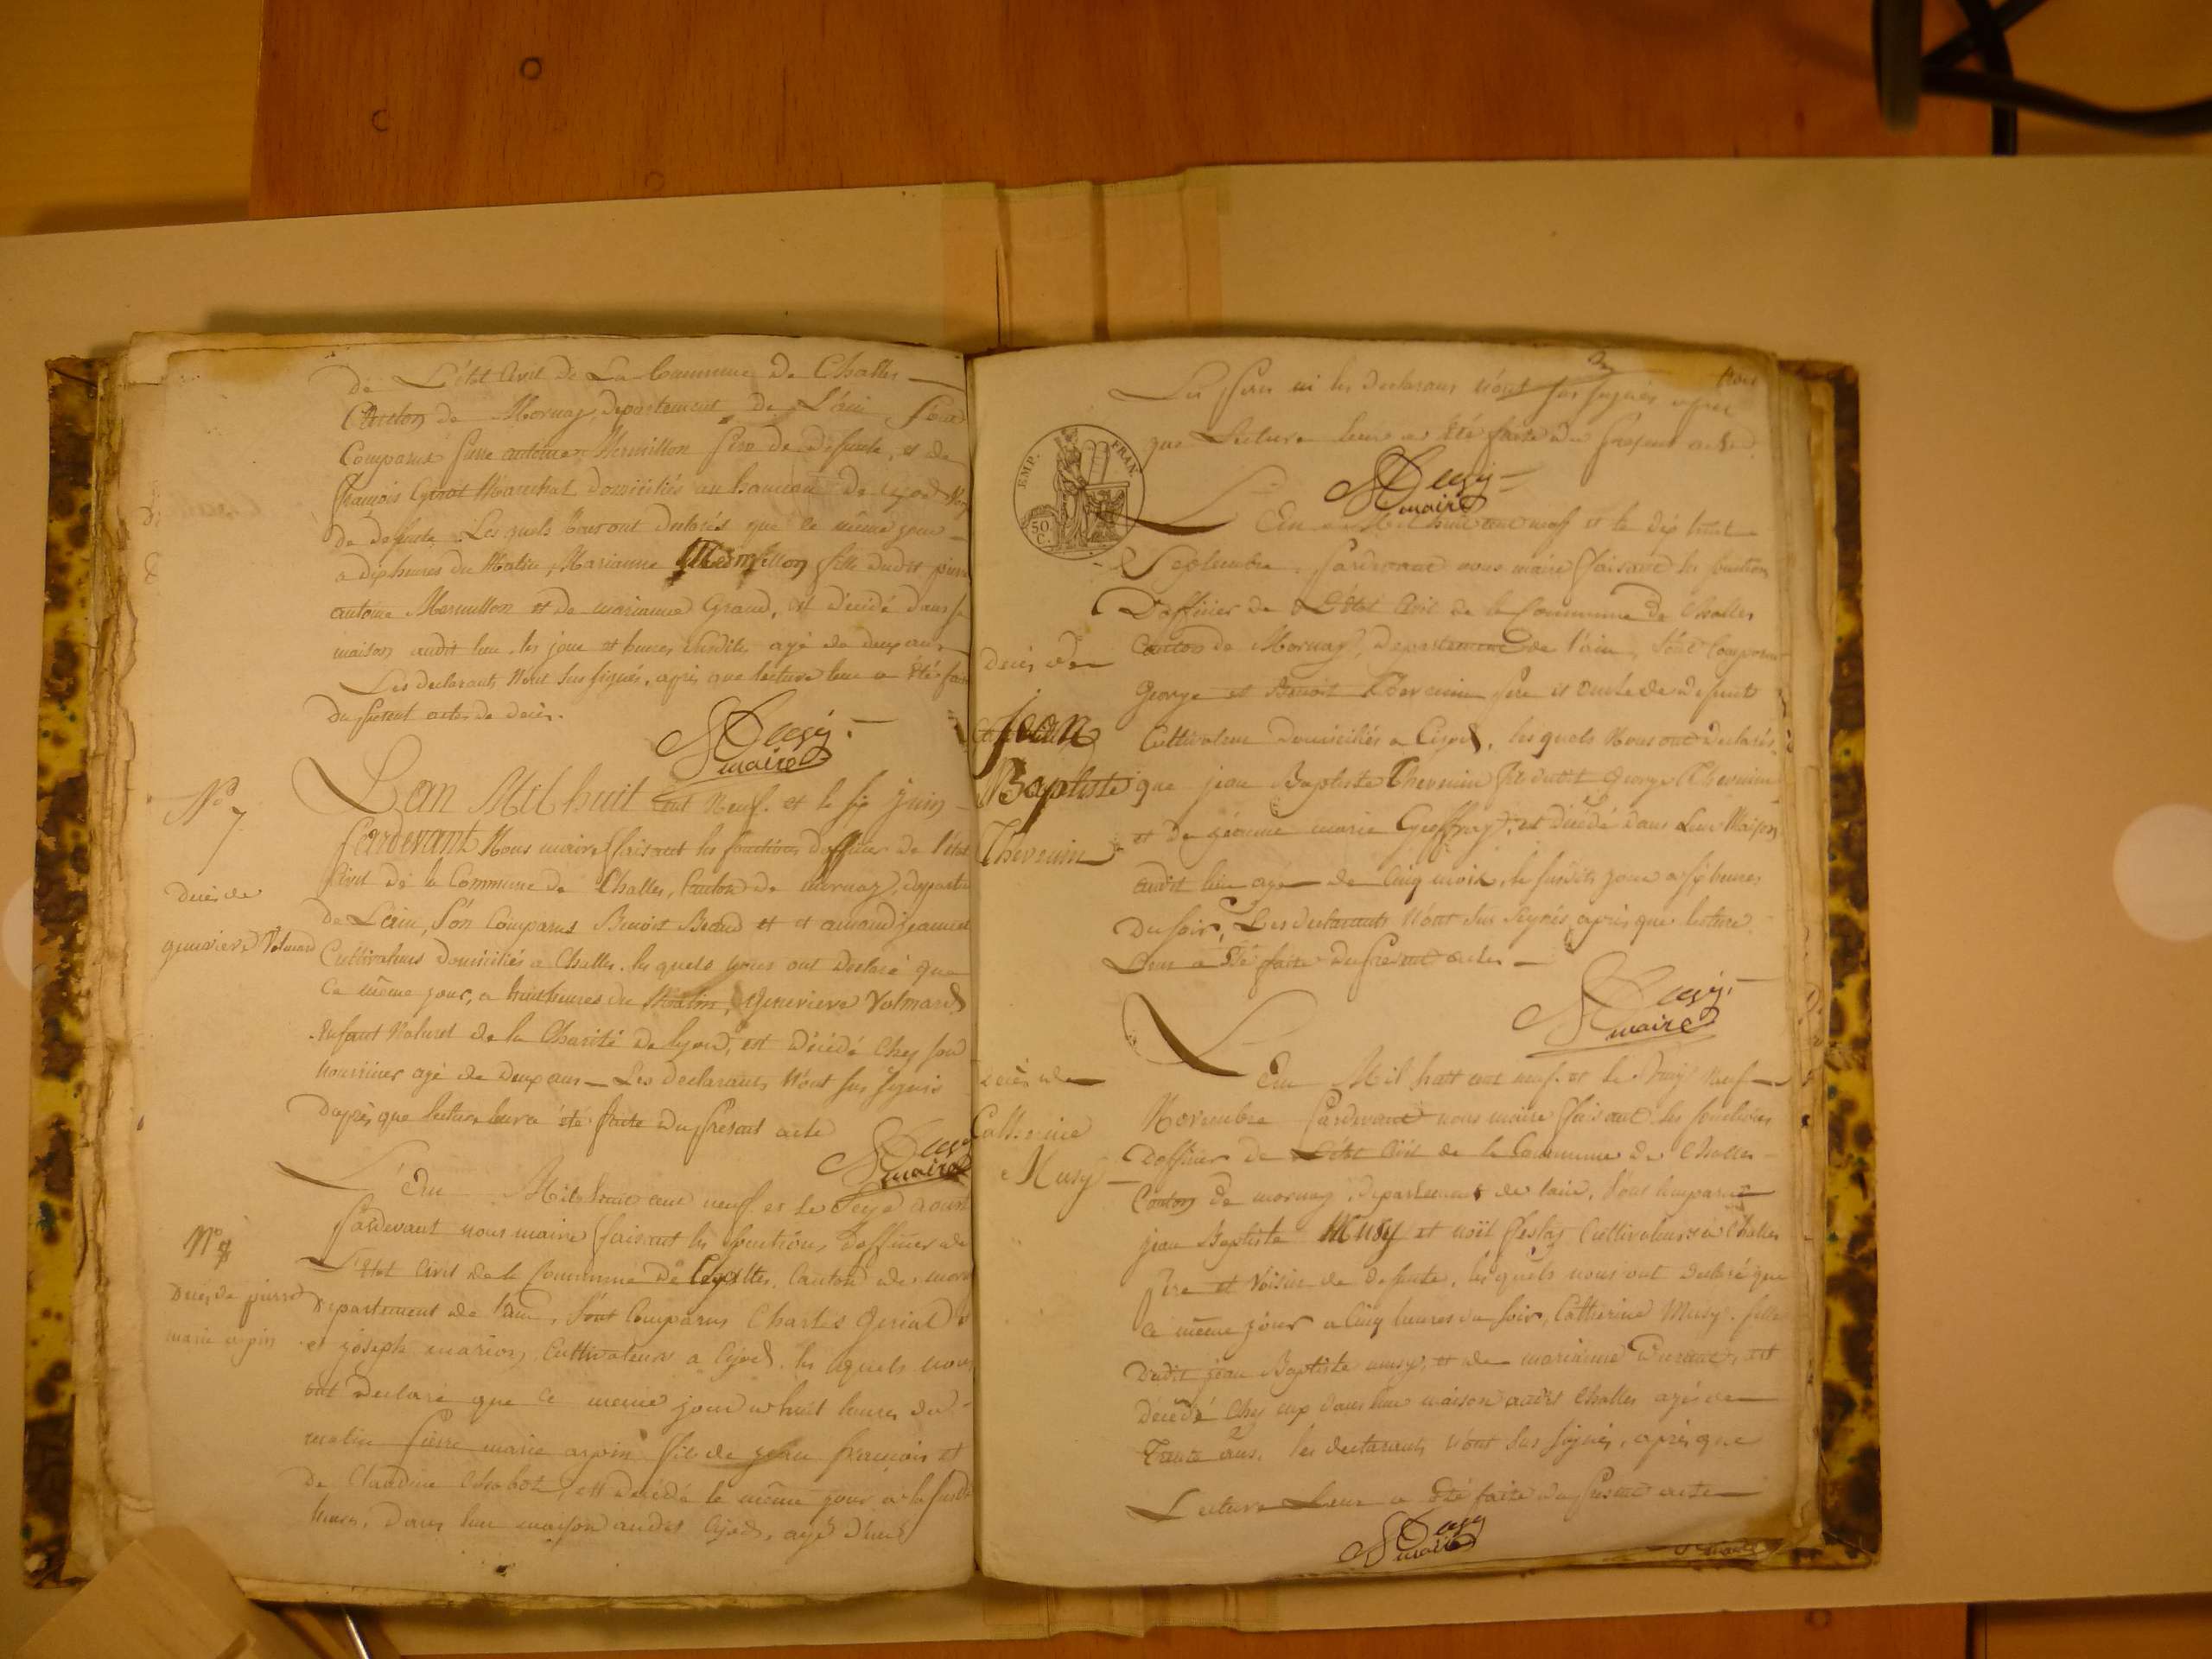 de L'état Civil de La Commune de Challes
Canton de Mornay, departement de L'ain Sont
Comparus pierre antoine Mermillon pere de defunte, et de
françois Marechal domiciliés au hameau de
de defunte. Les quels nous ont declarés que ce même jour
a dix heures du Matin, Marianne Mermillon fille dudit pierre
antoine Mermillon et de marianne Grand, est décédé dans sa
maison audit lieu, les jour et heures susdites, agé de deux ans
Les declarants n'ont sus signés, après que lecture leur a été faite
du present acte de décès.
maire
N° 7
Lan Mil huit cent Neuf. et le six juin
pardevant Nous maire faisant les fonctions dofficier de l'état
Civil de la Commune de Challes, Canton de mornay, departe
de Lain, Son Comparus Benoit et
Cultivateurs domiciliés a Challes. les quels nous ont declaré que
ce même jour, a huit heures du Matin, Genevieve Volmard
enfant Naturel de la Charité de lyon, est décédé chez son
nourricier agé de deux ans — Les declarants n'ont sus signés
daprès que lecture leur a été faite du present acte
décès de
genevieve Volmard
maire
L'an Mil huit cent neuf et le seize aoust
pardevant nous maire faisant les fonctions dofficier de
L'état Civil de la Commune de Challes, Canton de morn
departement de l'ain, Sont Comparus Charles
et joseph marion, Cultivateurs a les quels nous
ont declaré que ce meme jour a huit heures du
matin pierre marie arpin fils de jean francois et
de Claudine Chabot, est décédé le même jour a la susdite
heure, dans leur maison audit agé d'un
N° 8
décès de pierre
marie arpin
trois
Les declarans n'ont sus signés après
que Lecture leur a été faite du present acte.
maire
EMP. FRAN.
50 C.
L'an Mil huit cent neuf et le dix huit
Septembre, pardevant nous maire faisant les fonctions
D'officier de L'état Civil de la Commune de Challes
Canton de Mornay, departement de l'ain, Sont Comparus
George et Benoit Thevenin pere et oncle de defunt
Cultivateurs domiciliés a les quels Nous ont declarés
que jean Baptiste Thevenin fils dudit George Thevenin
et de jeanne marie Geoffray, est décédé dans Leur Maison
audit lieu agé de Cinq mois, le susdit jour a six heures
du soir, Les declarants N'ont sus signés après que lecture
Leur a été faite du present acte
décès de
jean
Baptiste
Thevenin
maire
L'an Mil huit cent neuf. et le vingt neuf
Novembre pardevant nous maire faisant les fonctions
Dofficier de L'état Civil de la Commune de Challes
Canton de mornay, departement de lain, Sont Comparus
jean Baptiste Musy et noël Cultivateurs a Challes
pere et Voisin de defunte, les quels nous ont declaré que
ce même jour a Cinq heures du soir, Catherine Musy. fille
dudit jean Baptiste musy, et de marianne est
décédé chez eux dans leur maison audit Challes agé de
Trente ans, les declarants n'ont sus signés, après que
Lecture Leur a été faite du present acte
décès de
Catherine
Musy
maire